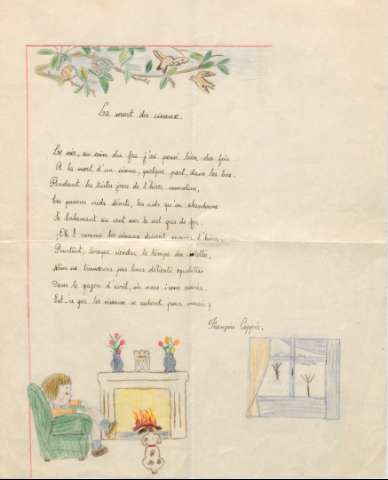 La mort des oiseaux.
Le soir, au coin du feu j'ai pensé bien des fois
A la mort d'un oiseau, quelque part, dans les bois.
Pendant les tristes jours de l'hiver monotone,
Les pauvres nids déserts, les nids qu'on abandonne
Se balancent au vent sur le ciel gris de fer.
Oh ! comme les oiseaux doivent mourir l'hiver.
Pourtant, lorsque viendra le temps des violettes,
Nous ne trouverons pas leurs délicats squelettes
Dans le gazon d'avril, où nous irons courir.
Est-ce que les oiseaux se cachent pour mourir ?
François Coppée.